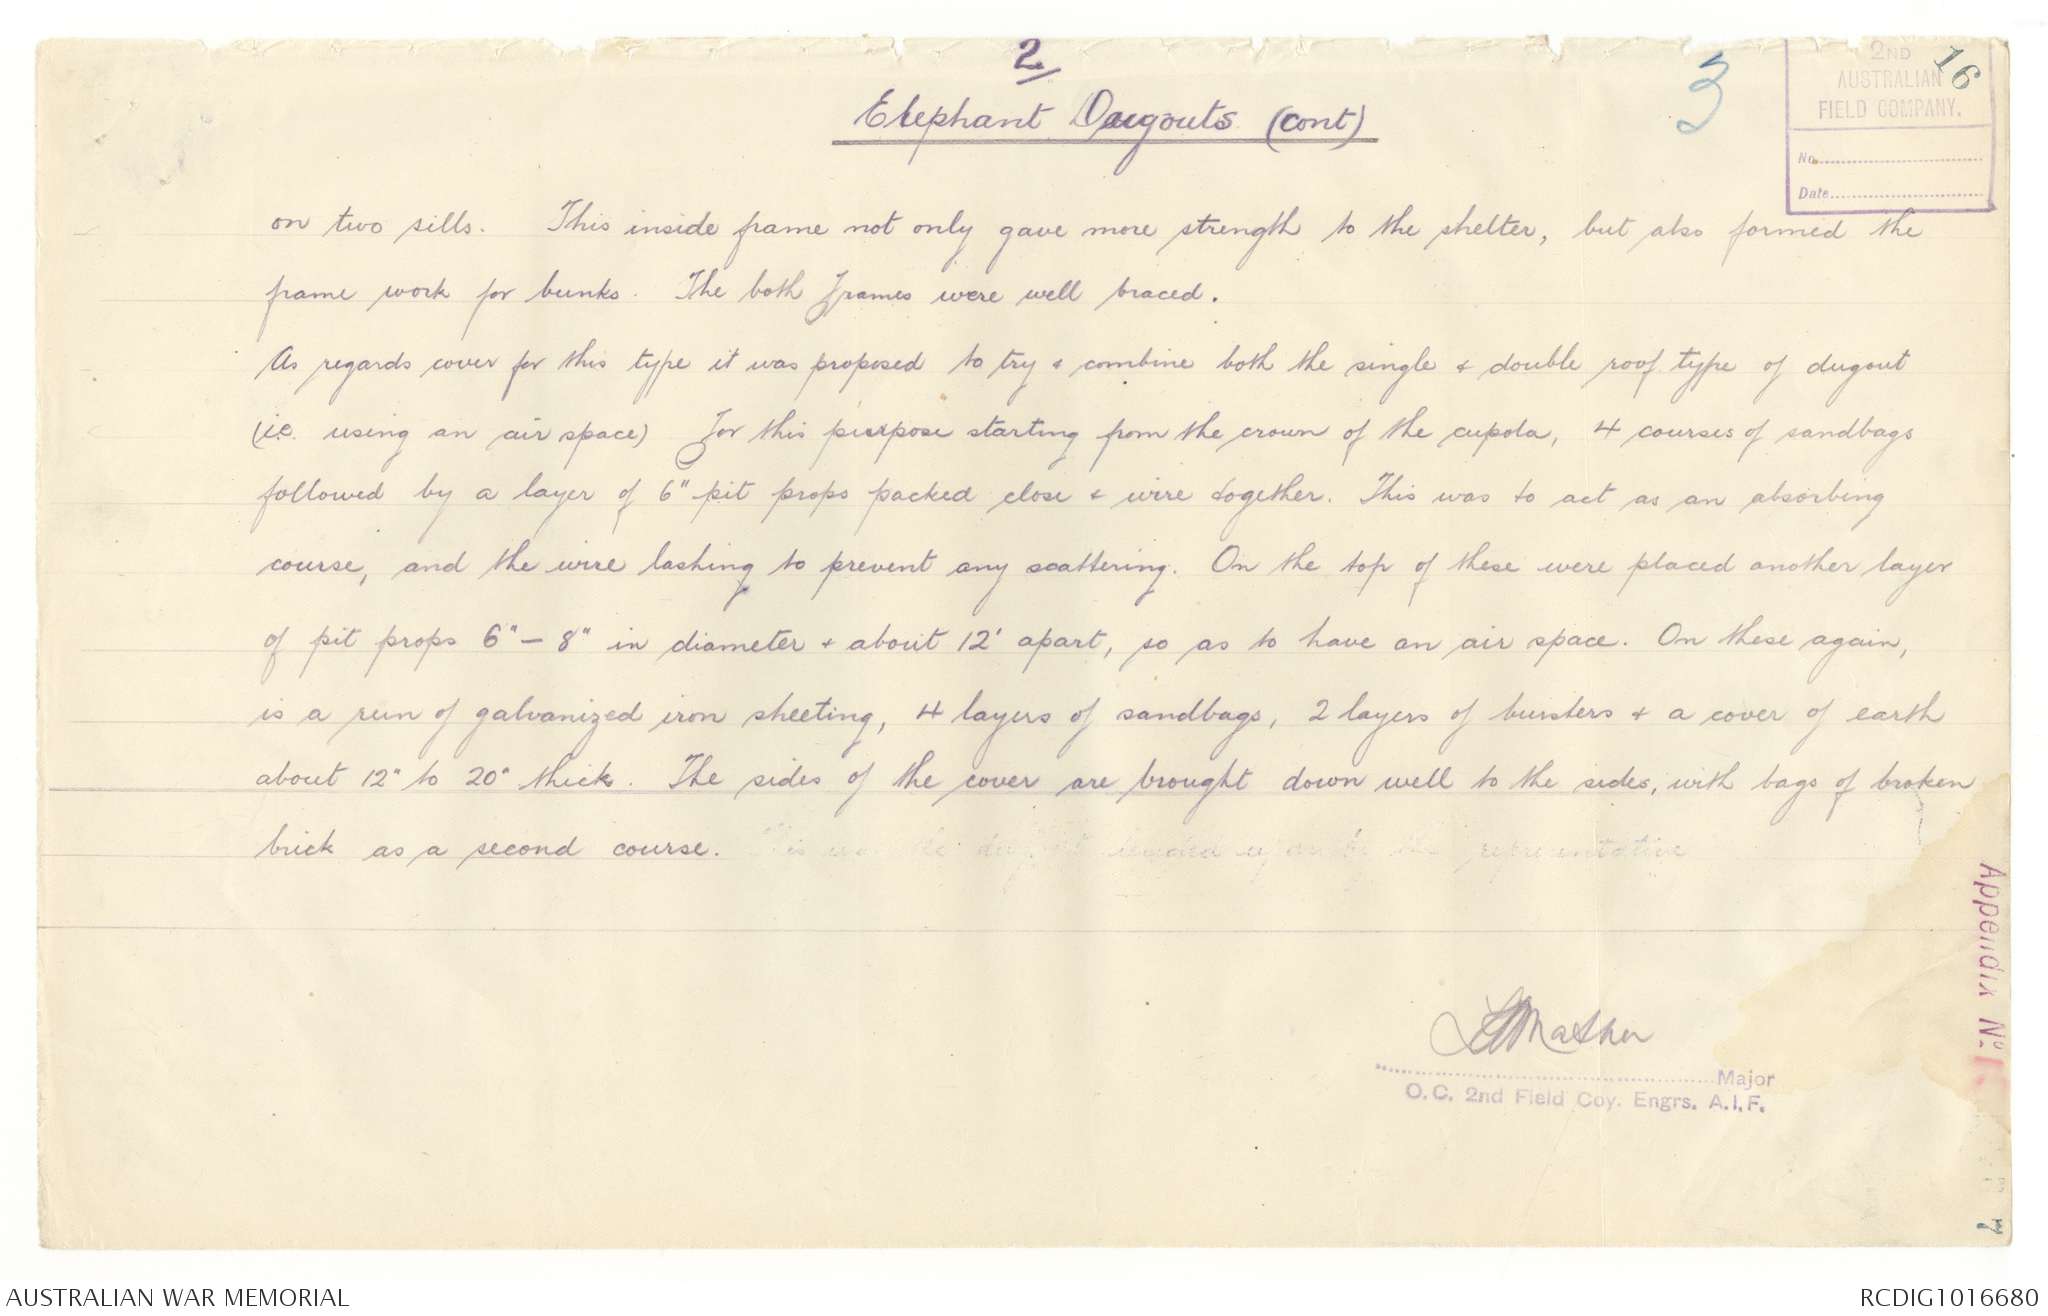 2/
3
16
2ND
AUSTRALIAN
FIELD COMPANY.
No.
Date
Elephant Dugouts (cont)
on two sills. This inside frame not only gave more strength to the shelter, but also formed the
frame work for bunks. The both Frames were well braced.
As regards cover for this type it was proposed to try & combine both the single & double roof type of dugout
(i.e. using an air space) For this purpose starting from the crown of the cupola, 4 courses of sandbags
followed by a layer of 6" pit props packed close & wire together. This was to act as an absorbing
course, and the wire lashing to prevent any scattering. On the top of these were placed another layer
of pit props 6" - 8" in diameter & about 12' apart, so as to have an air space. On these again,
is a run of galvanized iron sheeting, 4 layers of sandbags, 2 layers of bursters & a cover of earth
about 12" to 20" thick. The sides of the cover are brought down well to the sides, with bags of broken
brick as a second course. representative
Mather
Major
O.C. 2nd Field Coy. Engrs. A.I.F.
Appendix No.
7
AUSTRALIAN WAR MEMORIAL
RCDIG1016680